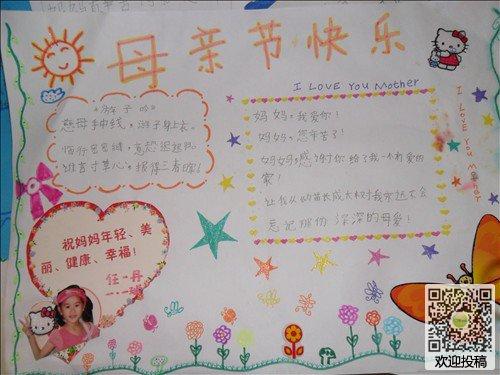 母亲节快乐
I LOVE YOU Mother
《游子吟》
慈母手中线，游子身上衣。
临行密密缝，意恐迟迟归。
谁言寸草心，报得三春晖！
妈妈，我爱你！
妈妈，您辛苦了！
妈妈，感谢你给了我一个有爱的
家！
让我从幼苗长成大树我永远不会
忘记那份深深的母爱！
I LOVE YOU Mother
祝妈妈年轻、美
丽、健康、幸福！
任一丹
欢迎投稿